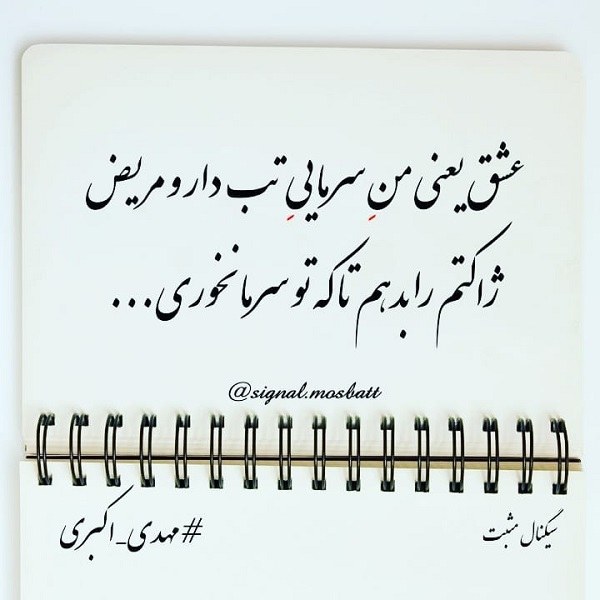 عشق یعنی منِ سرماییِ تب دار و مریض
ژاکتم را بدهم تا که تو سرما نخوری...
@signal.mosbatt
سیگنال مثبت
#مهدی_اکبری